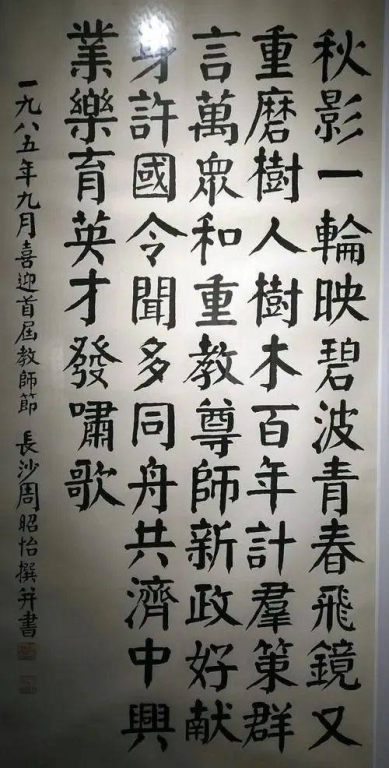 秋影一輪映碧波青春飛鏡又
重磨樹人樹木百年計羣策群
言萬眾和重教尊師新政好献
身許國令聞多同舟共濟中興
業樂育英才發嘯歌
一九八五年九月喜迎首屆教師節 長沙周昭怡撰并書